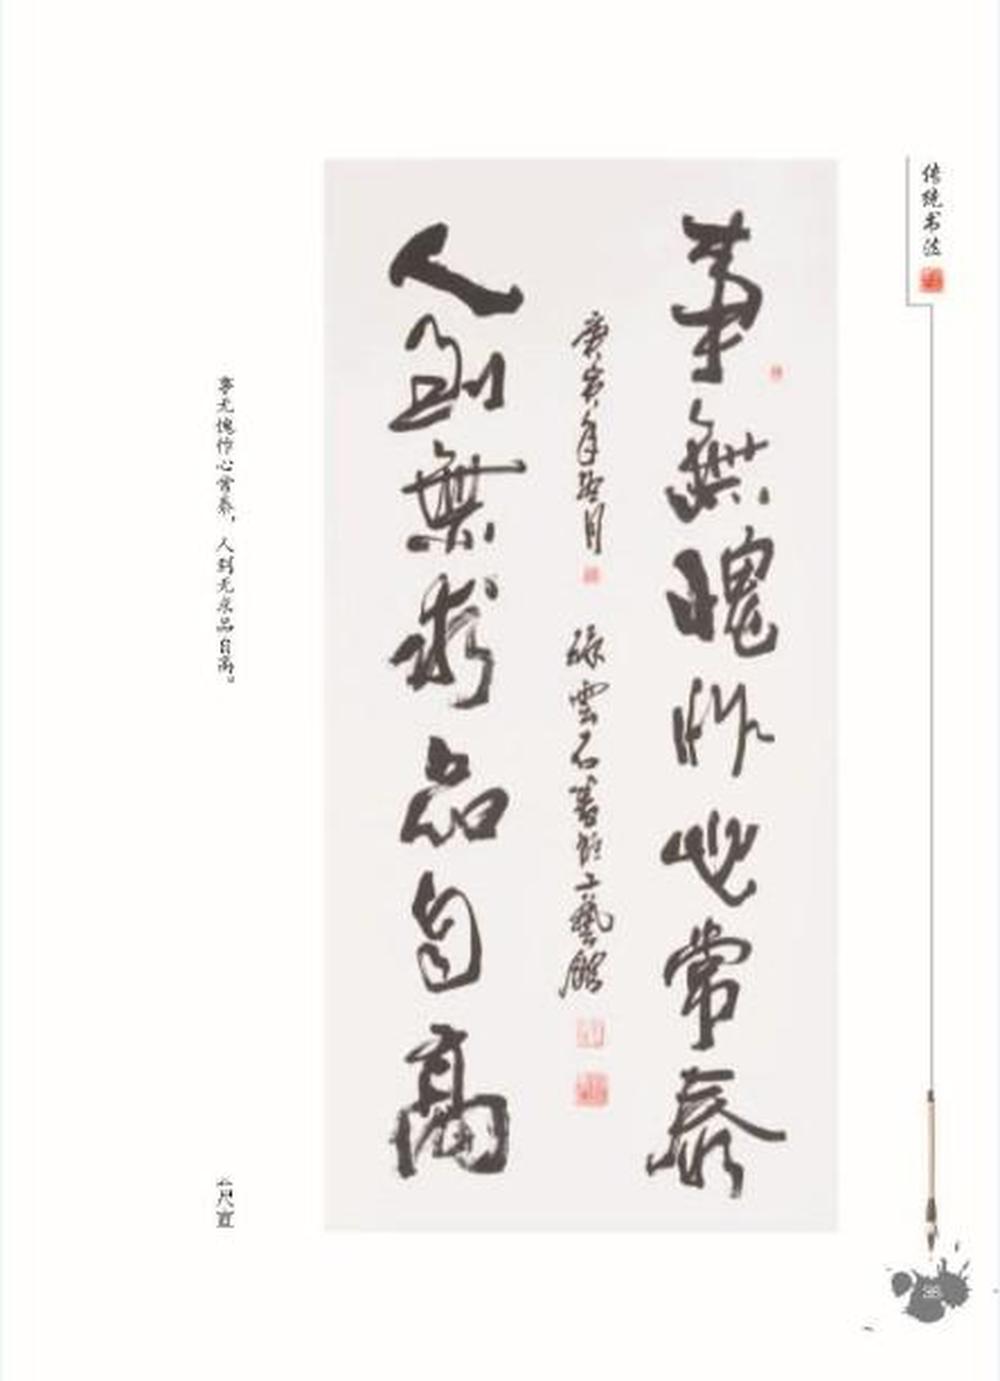 传统书法
事無愧怍心常泰
庚寅年冬月
張雲石書於上藝館
人到無求品自高
事无愧怍心常泰，人到无求品自高。
尺宣
38